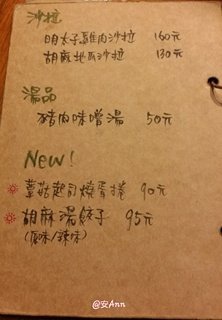 沙拉
明太子雞肉沙拉 160元
胡麻地瓜沙拉 130元
湯品
豬肉味噌湯 50元
New!
蘑菇起司燒蛋捲 90元
胡麻湯餃子 95元
(原味/辣味)
@安Ann